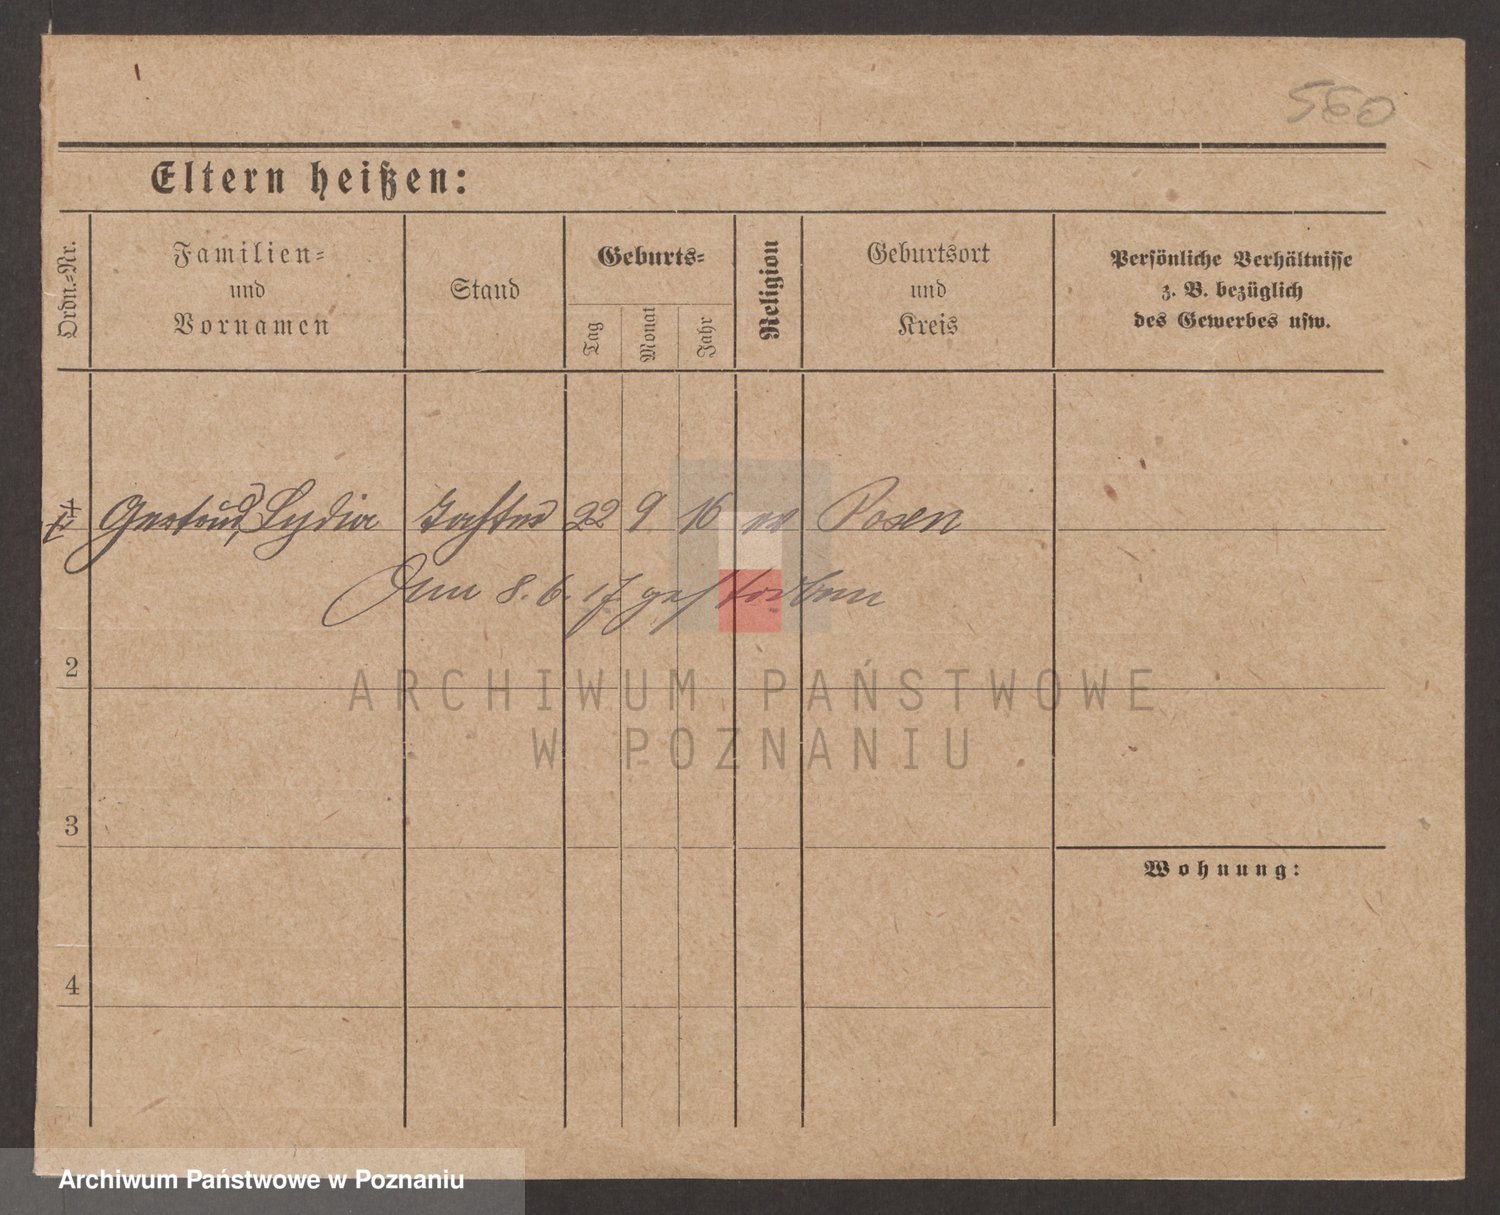 560
Eltern heißen:
Ordn.-Nr.
Familien-
und
Vornamen
Stand
Geburts-
Tag
Monat
Jahr
Religion
Geburtsort
und
Kreis
Persönliche Verhältnisse
z. B. bezüglich
des Gewerbes usw.
1 Gertrud, Lydia Tochter 22 9 16 ev Posen
Am 8. 6. 17 gestorben
2
ARCHIWUM PAŃSTWOWE
W POZNANIU
3
Wohnung:
4
Archiwum Państwowe w Poznaniu